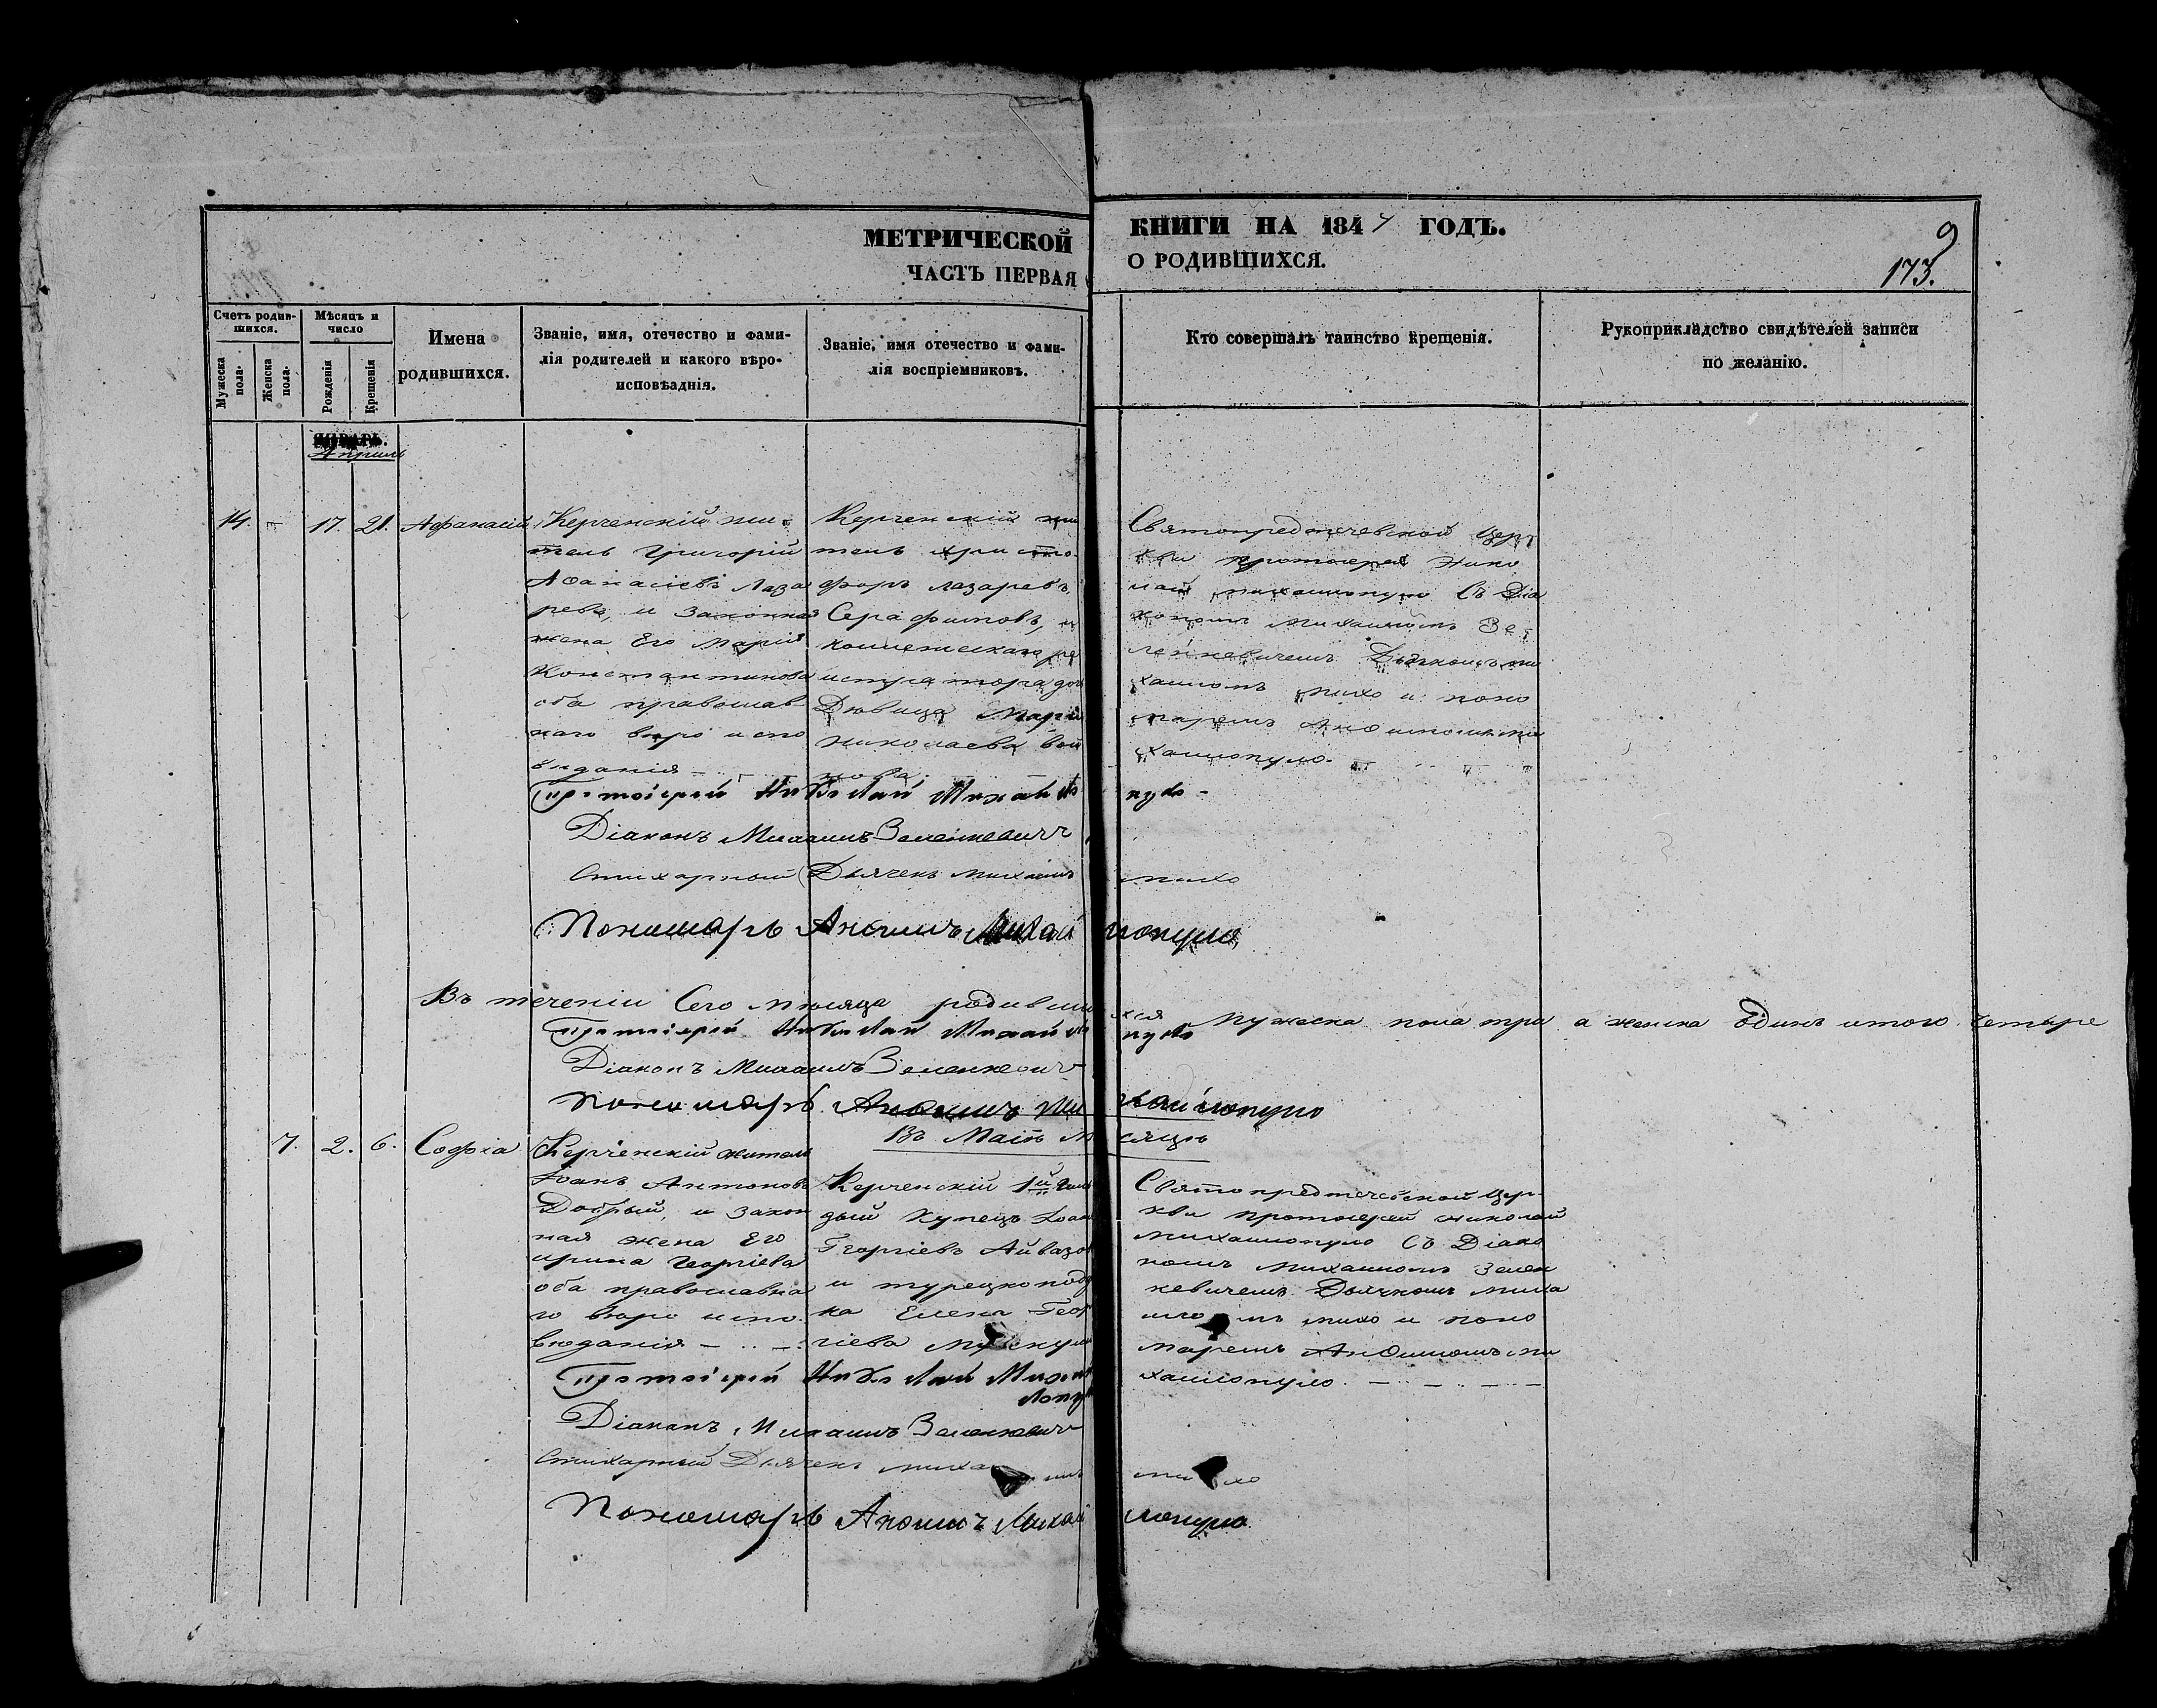 МЕТРИЧЕСКОЙ
ЧАСТЬ ПЕРВАЯ
КНИГИ НА 1847 ГОДЪ.
О РОДИВШИХСЯ.
9
173.
Счетъ родив-
шихся.
Мужеска
пола.
Женска
пола.
Мѣсяцъ и
число
Рожденія
Крещенія
Имена
родившихся.
Званіе, имя, отечество и фами-
лія родителей и какого вѣро-
исповѣаднія.
Званіе, имя отечество и фами-
лія воспріемниковъ.
Кто совершалъ таинство крещенія.
Рукоприкладство свидѣтелей записи
по желанію.
ЯНВАРЬ.
Апрѣль
14.
17.
21.
Афанасій
Керченскій жи
тель Григорій
Афанасіевъ Лаза
ревъ, и законная
жена Его Марія
Константинова
оба православ
наго вѣро испо
вѣданія
Керченскій жи
тель Христо
форъ Лазаревъ
Серафимовъ, и
Дѣвица Марія
Николаева
Святопредтечевской Цер
кви протоіерей Нико
лай Михаилопуло Съ Діа
кономъ Михаиломъ Зе
ленкевичемъ Дьячкомъ ми
хаиломъ Михо и поно
маремъ Анфимомъ ми
хаилопуло.
Протоіерей Николай Михайлопуло
Діаконъ Михаилъ Зеленкевичъ
Стихарный Дьячекъ Михаилъ Михо
Пономарь Анфимъ Михайлопуло
Въ теченіи Сего мѣсяца родившихся Мужеска пола три а женска Одинъ итого четыре
Протоіерей Николай Михайлопуло
Діаконъ Михаилъ Зеленкевичъ
Пономарь Анфимъ Михайлопуло
Въ Маіѣ Мѣсяцѣ
7.
2.
6.
Софіа
Керченскій житель
Іоанъ Антоновъ
Добрый, и закон
ная жена Его
ирина Георгіева
оба православна
го вѣро испо
вѣданія
Керченскій 1й Гиль
дый Купецъ Іоан
Георгіевъ Айвазо
и турецкопод
ка Елена Геор
гіева
Святопредтечевской Цер
кви протоіерей николай
Михаилопуло Съ Діако
номъ михаиломъ Зелен
кевичемъ Дьячкомъ миха
иломъ михо и поно
маремъ Анфимомъ ми
хаилопуло
Протоіерей Николай Михай
лопу
Діаконъ Михаилъ Зеленкевичъ
Стихарный Дьячекъ михаилъ михо
Пономарь Анфимъ Михайлопуло